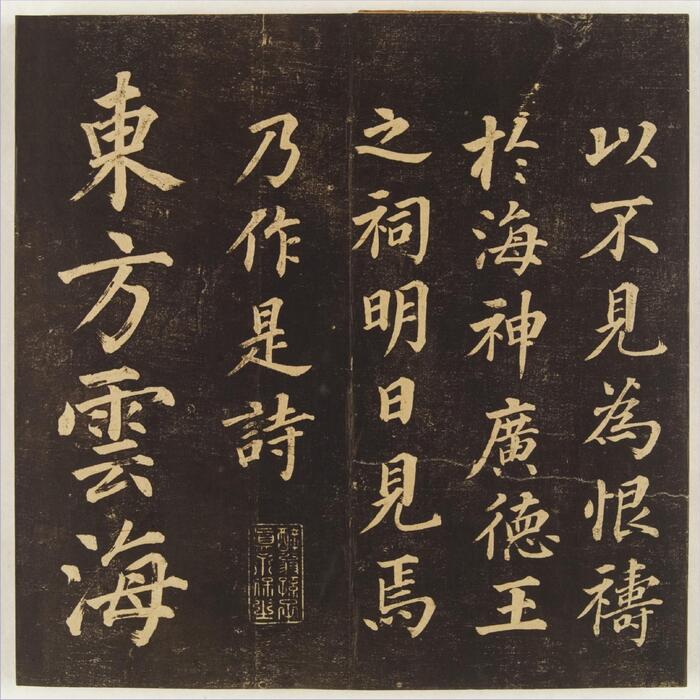 以不見為恨禱
於海神廣德王
之祠明日見焉
乃作是詩
東方雲海